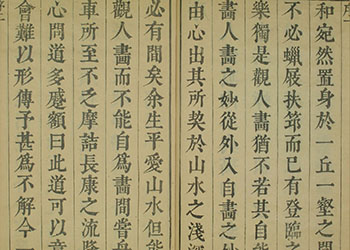 和宛然置身於一丘一壑之間
不必蠟屐扶筇而已有登臨之
樂獨是觀人畫猶不若其自
畫人畫之妙從外入自畫之妙
由心出其所契於山水之淺深
必有間矣余生平愛山水但能
觀人畫而不能自爲畫間嘗舟
車所至不乏摩詰長康之流降
心問道多蹙額曰此道可以意
會難以形傳予甚爲不解今一